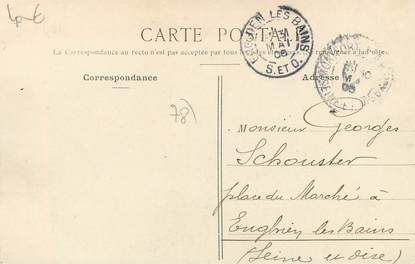 CARTE POSTALE
La Correspondance au recto n'est pas acceptée par tous
Correspondance
Adresse
ENGHIEN LES BAINS
MAI
06
S. ET O.
78)
Monsieur Georges
Schouster
place du Marché à
Enghien les Bains
(Seine et Oise)